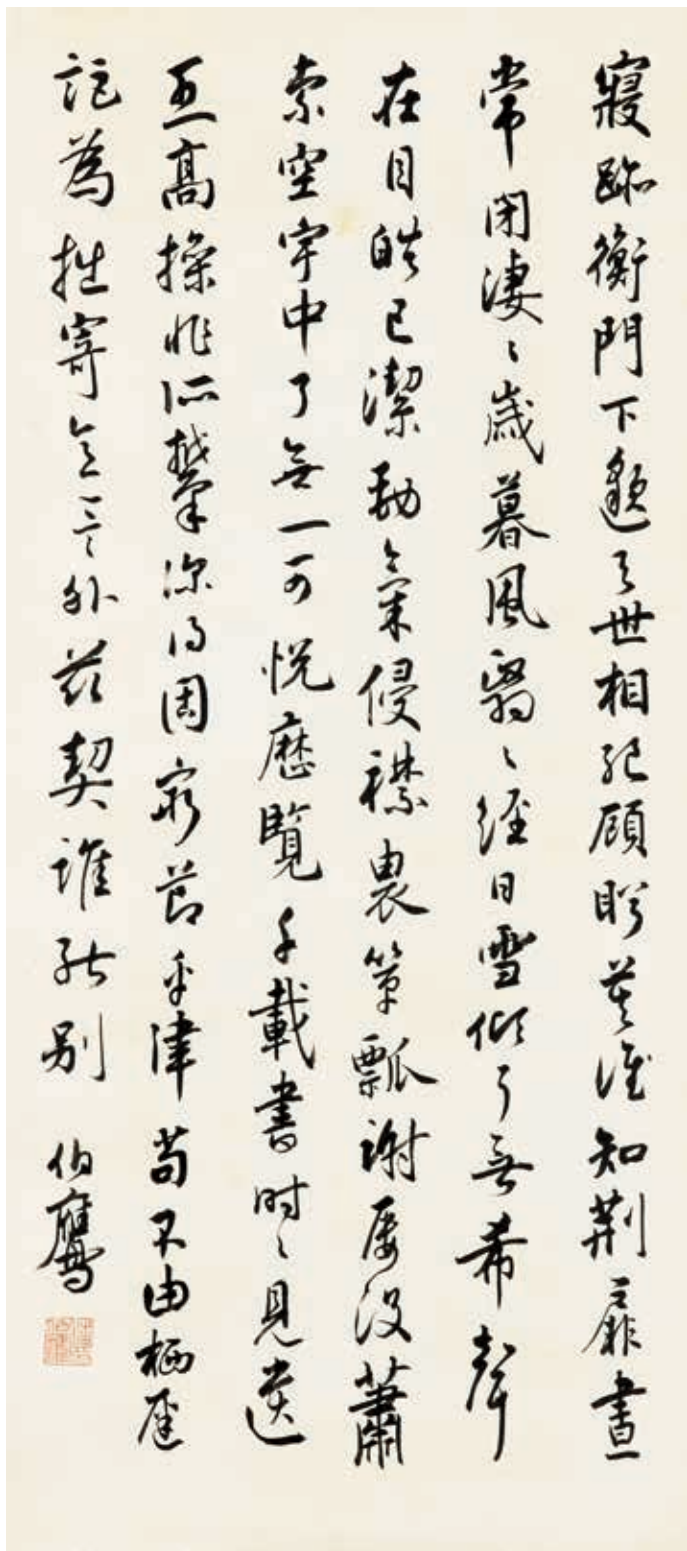 寢跡衡門下邈與世相絕顧盼莫誰知荊扉晝
常閉淒〻歲暮風翳〻經日雪傾耳無希聲
在目皓已潔勁氣侵襟裾簞瓢謝屢設蕭
索空宇中了無一可悅歷覽千載書時〻見遺
烈高操非所攀深得固窮節平津苟不由栖遲
詎為拙寄意言外茲契誰能別
伯鷹